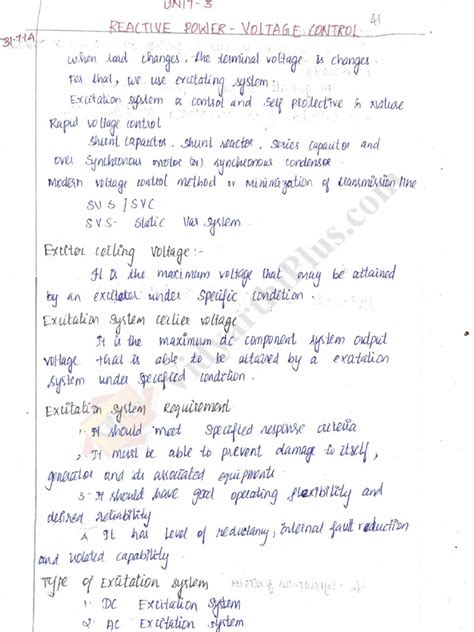 UNIT-3
41
REACTIVE POWER - VOLTAGE CONTROL
31.7.1A
When load changes, the terminal voltage is changes.
For that, we use excitating system:
Excitation system is control and self protective in nature
Rapid voltage control
Shunt capacitor, shunt reactor, series capacitor and
over synchronous motor (or) synchronous condensor.
Modern voltage control method or minimization of transmission line
SVS / SVC
SVS- Static Var System.
Exciter ceiling voltage:-
It is the maximum voltage that may be attained
by an excitator under specific condition.
Excitation System cerlier voltage
It is the maximum dc component system output
voltage that is able to be attained by a excitation
system under specified condition.
Excitation system Requirement
1. It should meet specified response criteria
2. It must be able to prevent damage to itself,
generator and its associated equipments.
3. It should have good operating flexibility and
desired reliability
4. It has level of reductancy, internal fault reduction
and isolated capability.
Type of Excitation system
1. DC Excitation System
2. AC Excitation System
vidyarthiplus.com